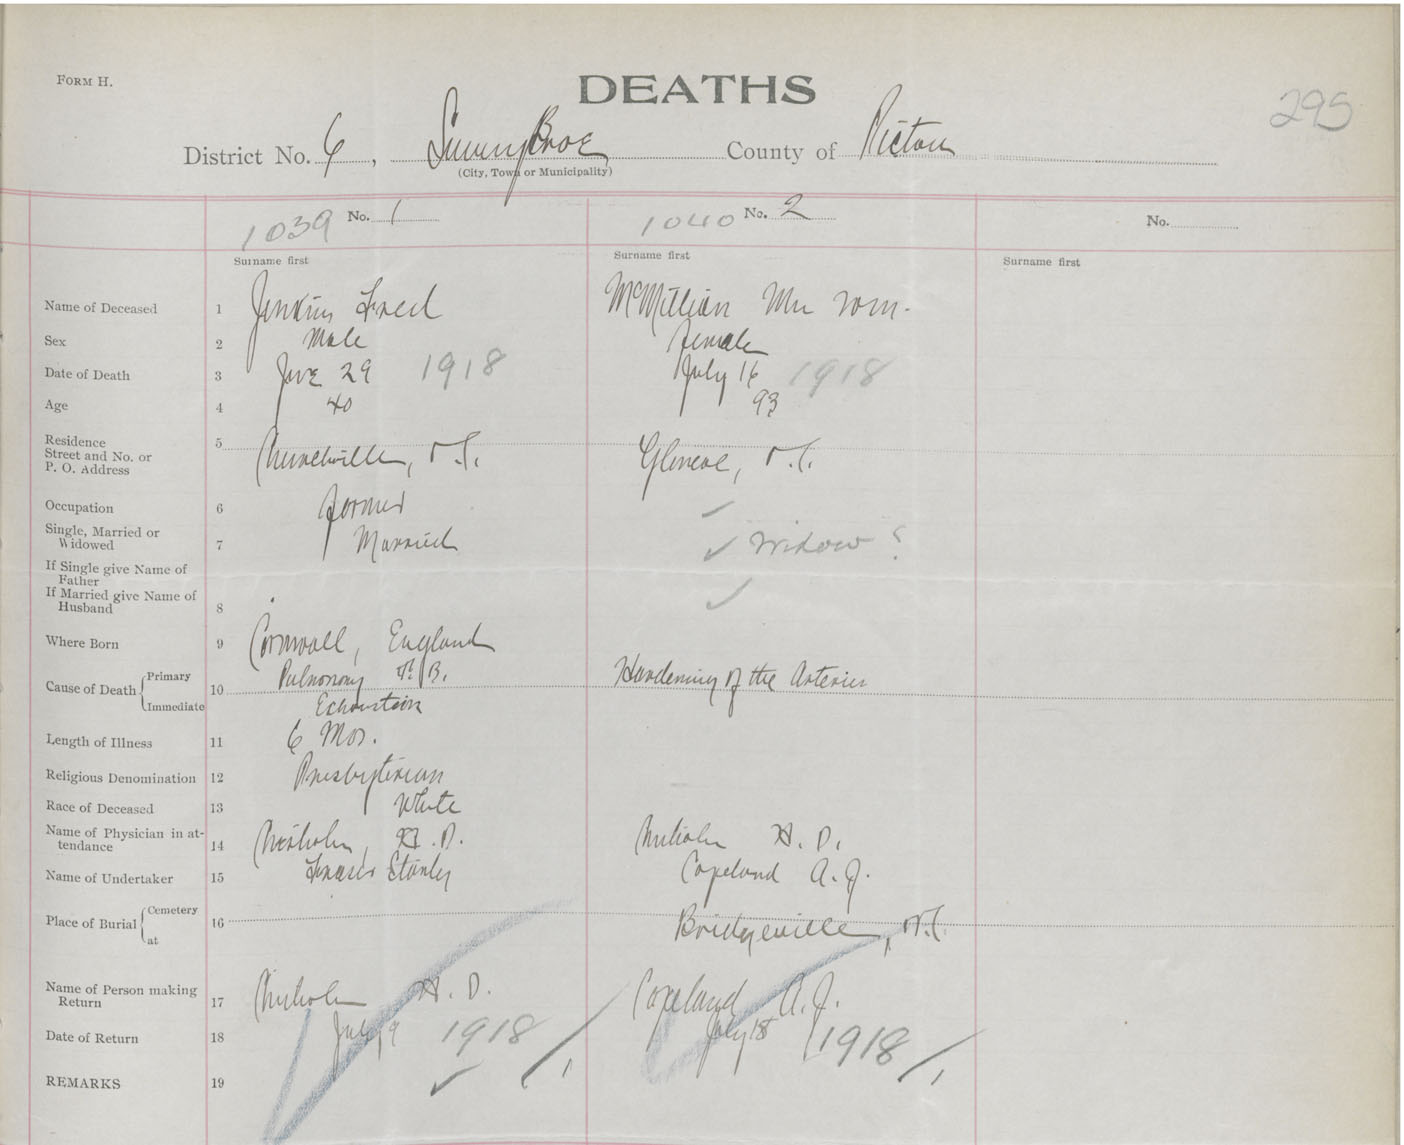 FORM H.
DEATHS
295
District No. 6, SunnyBrae County of Pictou
(City, Town or Municipality)
1039 No. 1 1040 No. 2 No.
Surname first Surname first Surname first
Name of Deceased 1 Jenkins Fred McMillian Mrs Wm.
Sex 2 Male Female
Date of Death 3 June 29 1918 July 16 1918
Age 4 40 93
Residence
Street and No. or
P. O. Address 5 Churchville, N.S. Glencoe, N.S.
Occupation 6 Farmer ✓
Single, Married or
Widowed 7 Married ✓ Widow ?
If Single give Name of
Father
If Married give Name of
Husband 8 ✓
Where Born 9 Cornwall, England
Cause of Death { Primary Pulmonary T.B. Hardening of the Arteries
10
Immediate Exhaustion
Length of Illness 11 6 Mos.
Religious Denomination 12 Presbyterian
Race of Deceased 13 White
Name of Physician in at-
tendance 14 H.D. H.D.
Name of Undertaker 15 Fraser Stanley Copeland A.J.
Place of Burial { Cemetery
16 Bridgeville, N.S.
at
Name of Person making
Return 17 H.D. Copeland A.J.
Date of Return 18 July 9 1918 July 18 1918
REMARKS 19 ✓